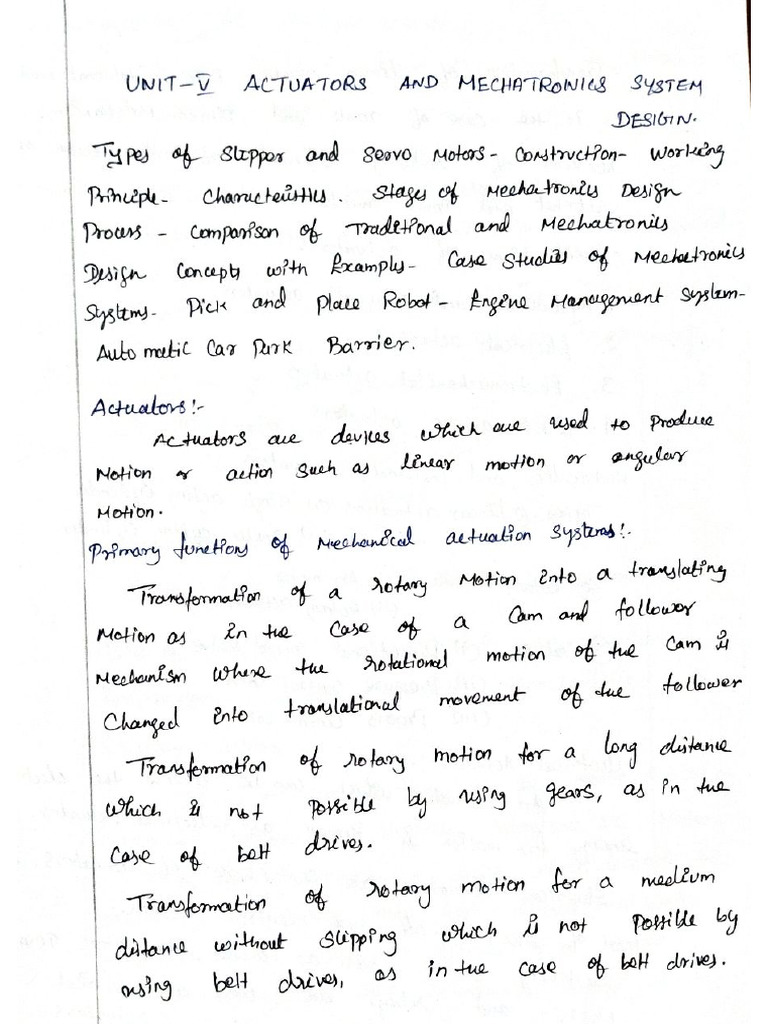 UNIT-V ACTUATORS AND MECHATRONICS SYSTEM
DESIGN.
Types of Stipper and Servo Motors- Construction- Working
Principle- Characteristics. Stages of Mechatronics Design
Process - Comparison of Traditional and Mechatronics
Design Concepts with Examples- Case Studies of Mechatronics
Systems- Pick and Place Robot- Engine Management System-
Automatic Car Park Barrier.
Actuators:-
Actuators are devices which are used to produce
Motion or action such as linear motion or angular
Motion.
Primary functions of Mechanical actuation Systems:-
Transformation of a rotary Motion into a translating
Motion as in the case of a Cam and follower
Mechanism where the rotational motion of the Cam is
Changed into translational movement of the follower
Transformation of rotary motion for a long distance
which is not possible by using gears, as in the
case of belt drives.
Transformation of rotary motion for a medium
distance without slipping which is not possible by
using belt drives, as in the case of belt drives.